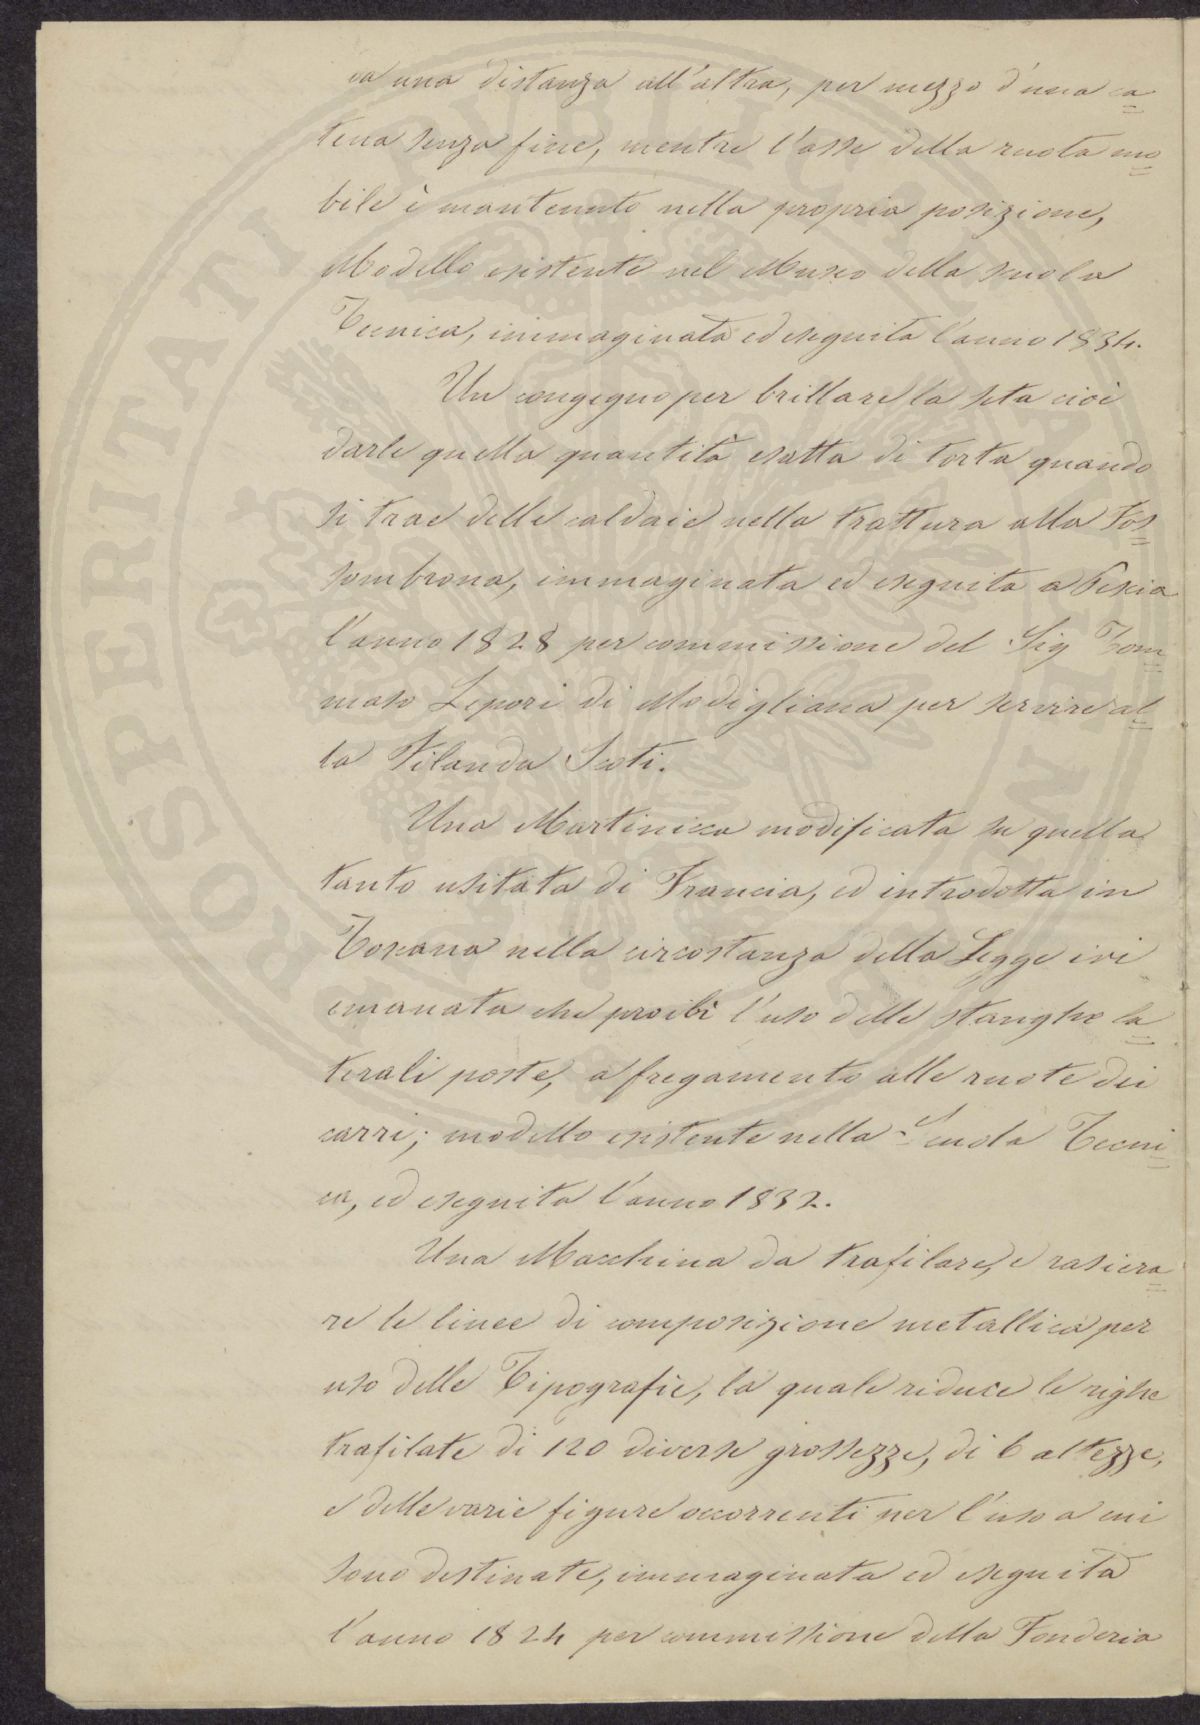 va una distanza all'altra, per mezzo d'una ca=
tena senza fine, mentre l'asse della ruota mo=
bile è mantenuto nella propria posizione,
Modello esistente nel Museo della scuola
Tecnica, immaginata ed eseguita l'anno 1834.
Un congegno per brillare la seta cioè
darle quella quantità esatta di torta quando
si trae delle caldaie nella trattura alla Fos=
sombrona, immaginata ed eseguita a Pescia
l'anno 1828 per commissione del Sig Tom=
maso Lepori di Modigliana per servire al=
la Filanda Scoti.
Una Martinicca modificata su quella
tanto usitata di Francia, ed introdotta in
Toscana nella circostanza della Legge ivi
emanata che proibì l'uso delle stanghe la=
terali poste, a fregamento alle ruote dei
carri; modello esistente nella Scuola Tecni=
ca, ed eseguita l'anno 1832.
Una Macchina da trafilare, e rasiera=
re le linee di composizione metallica per
uso delle Tipografie, la quale riduce le righe
trafilate di 120 diverse grossezze, di 6 altezze,
e delle varie figure occorrenti per l'uso a cui
sono destinate, immaginata ed eseguita
l'anno 1824 per commissione della Fonderia
PROSPERITATI PUBLICAE